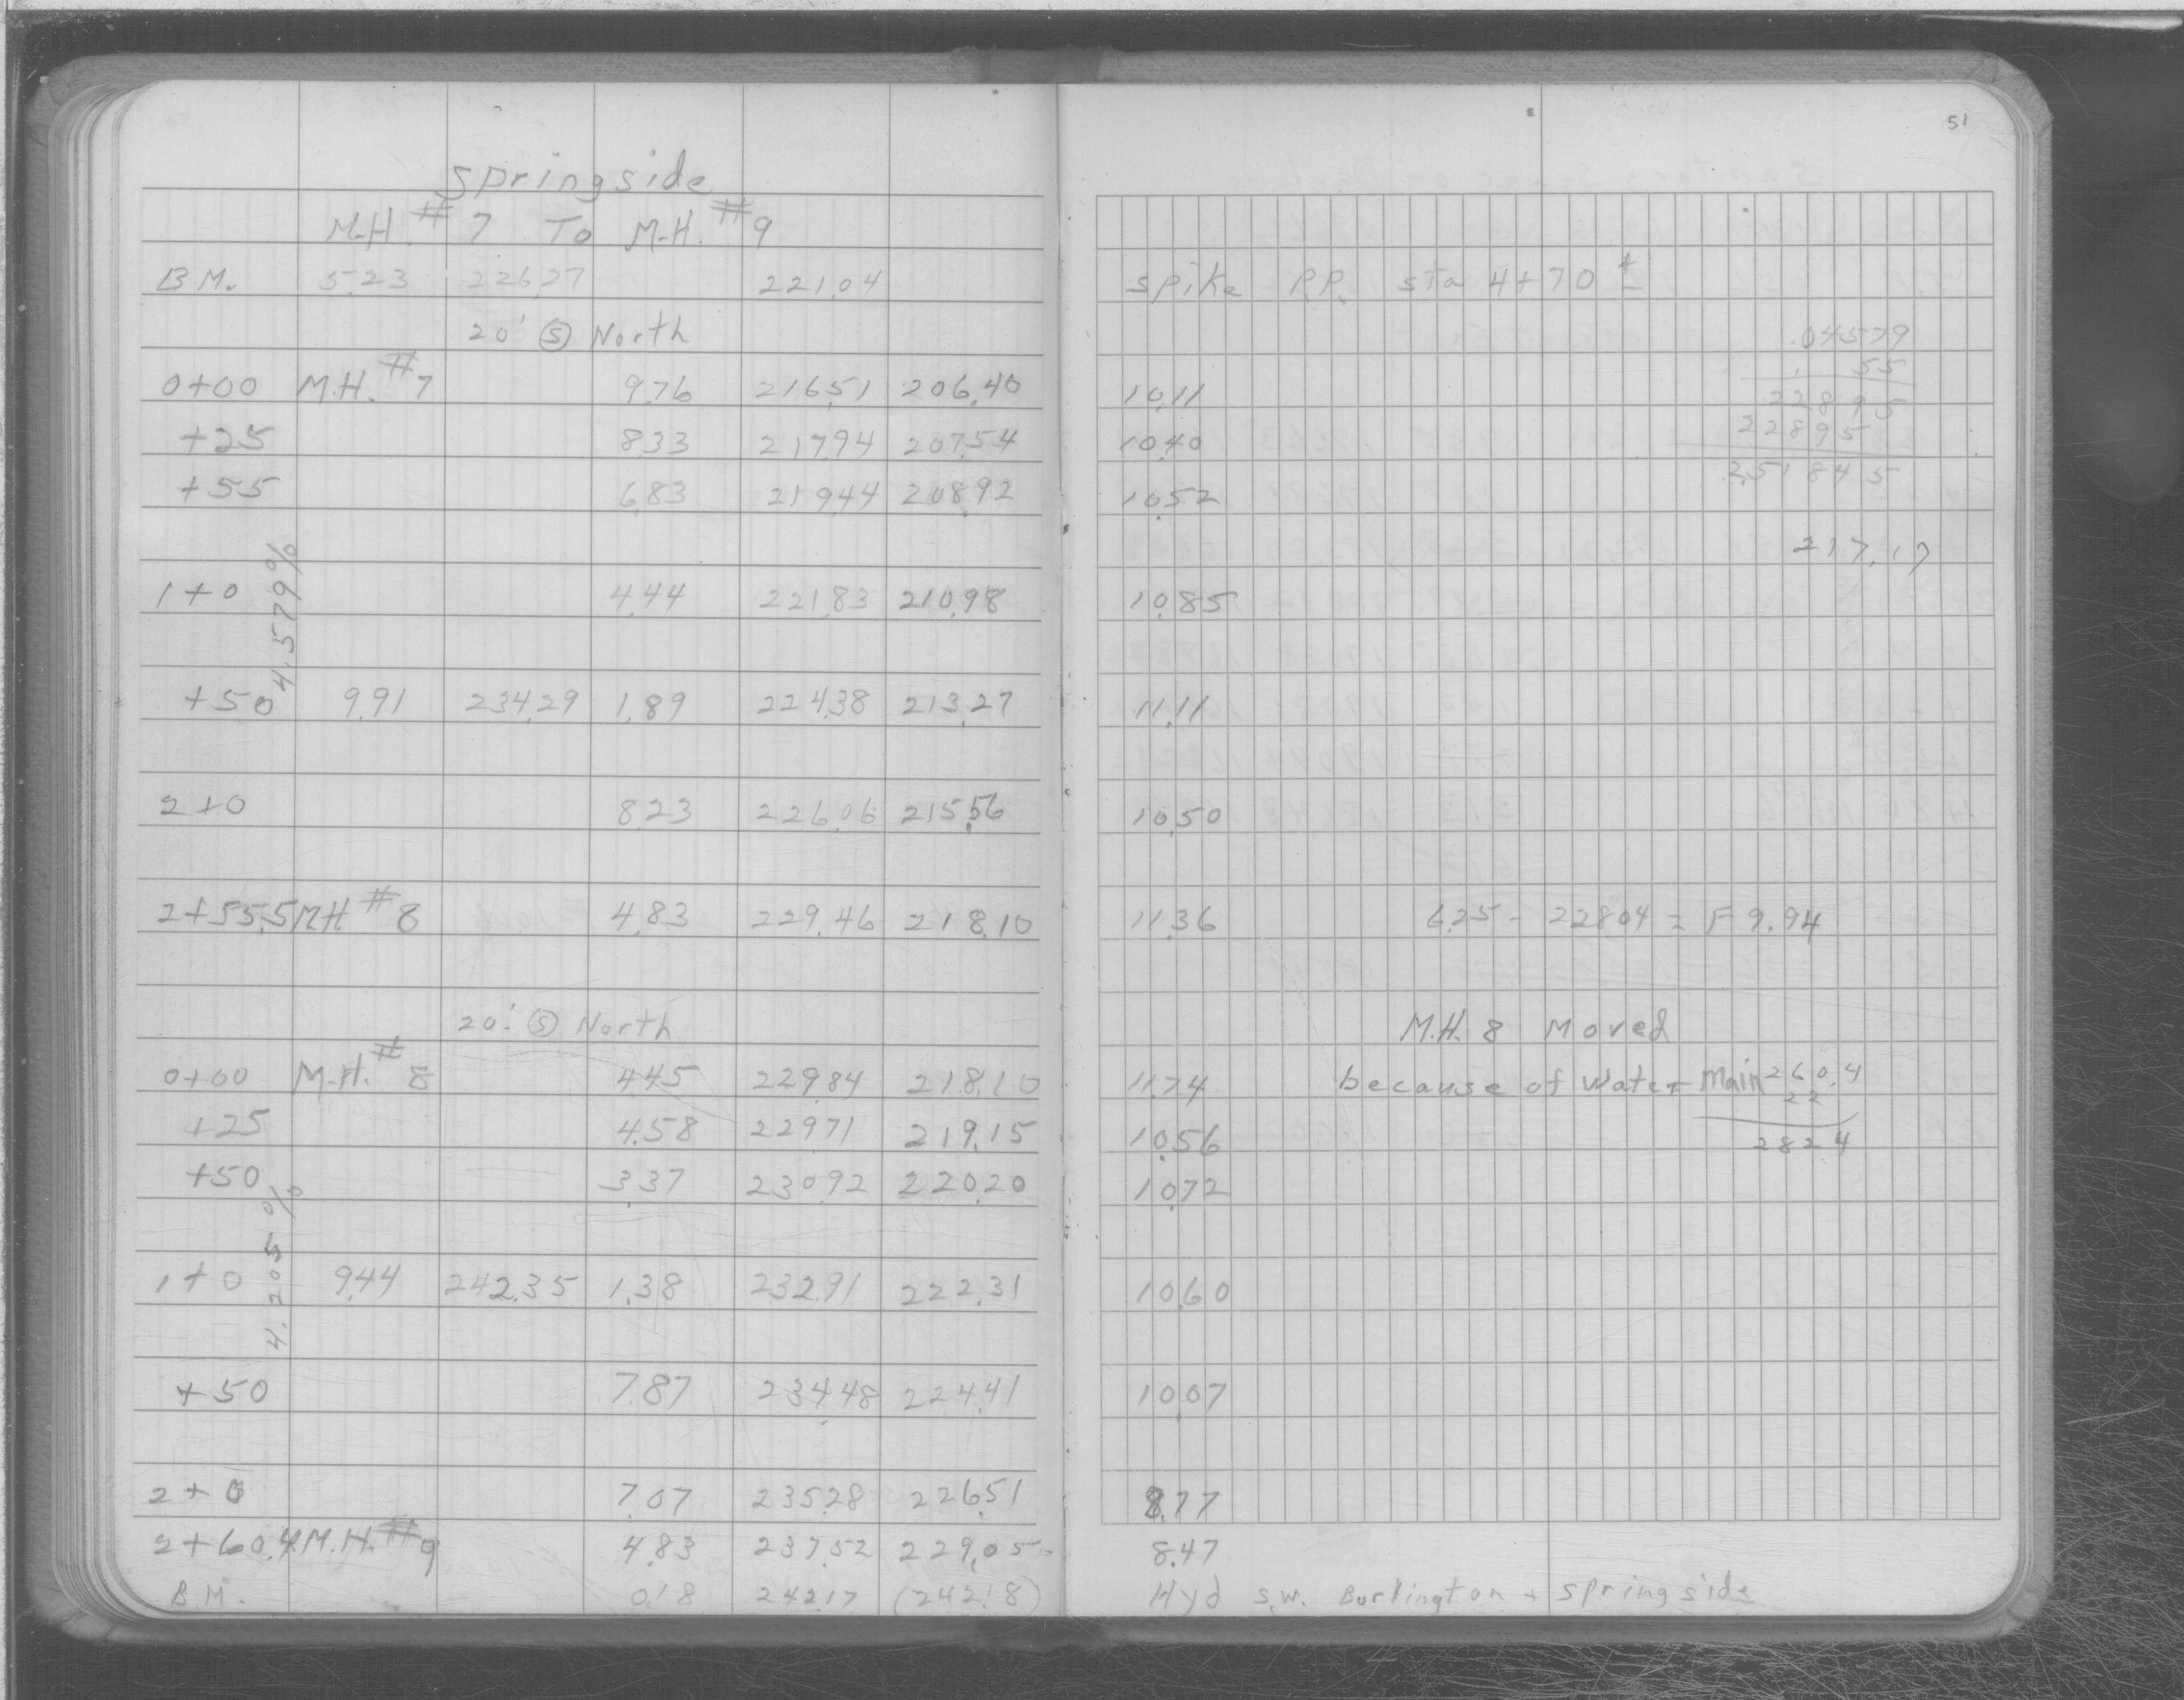 51
Springside
M.H. #7 To M.H. #9
B.M. 5.23 226.27 221.04 Spike P.P. sta 4+70 ±
20' Ⓢ North .04579
55
0+00 M.H. #7 9.76 216.51 206.40 10.11 22895
+25 8.33 217.94 207.54 10.40 22895
+55 6.83 219.44 208.92 10.52 2.51845
217.17
4.579%
1+0 4.44 221.83 210.98 10.85
+50 9.91 234.29 1.89 224.38 213.27 11.11
2+0 8.23 226.06 215.56 10.50
2+55.5 MH #8 4.83 229.46 218.10 11.36 6.25 - 228.04 = F 9.94
20' Ⓢ North M.H. 8 Moved
0+00 M.H. #8 4.45 229.84 218.10 11.74 because of Water Main 260.4
22
+25 4.58 229.71 219.15 10.56 282.4
+50 3.37 230.92 220.20 10.72
4.205%
1+0 9.44 242.35 1.38 232.91 222.31 10.60
+50 7.87 234.48 224.41 10.07
2+0 7.07 235.28 226.51 8.77
2+60.4 M.H. #9 4.83 237.52 229.05 8.47
B.M. 0.18 242.17 (242.18) Hyd S.W. Burlington + Springside